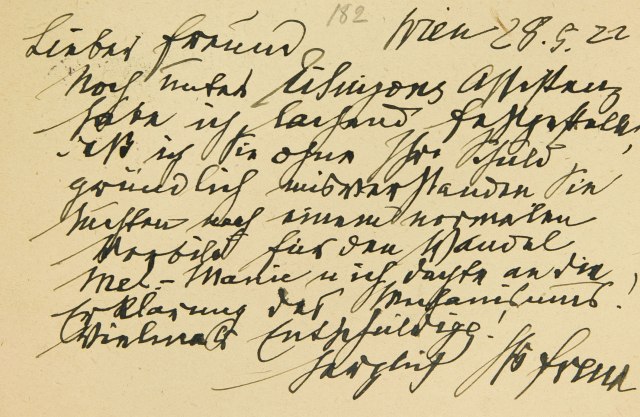 182
Wien 28.5.22
Lieber Freund
Noch unter Eitingons Assistenz
habe ich lachend festgestellt,
daß ich Sie ohne Ihre Schuld
gründlich misverstanden. Sie
suchten nach einem normalen
Vorbild für den Wandel
Mel-Manie u ich dachte an die
Erklärung des Mechanismus!
Vielmals Entschuldigg!
Herzlich Ihr Freud